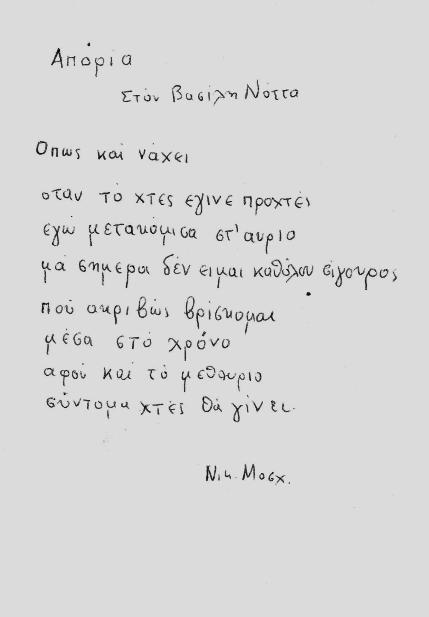 Απορία
Στόν Βασίλη Νόττα
Οπως και νάχει
οταν τό χτές εγινε προχτές
εγώ μετακόμισα στ' αυριο
μά σημερα δέν ειμαι καθόλου σίγουρος
πού ακριβώς βρίσκομαι
μέσα στό χρόνο
αφού και τό μεθαυριο
σύντομα χτές θά γίνει.
Νικ. Μοσχ.